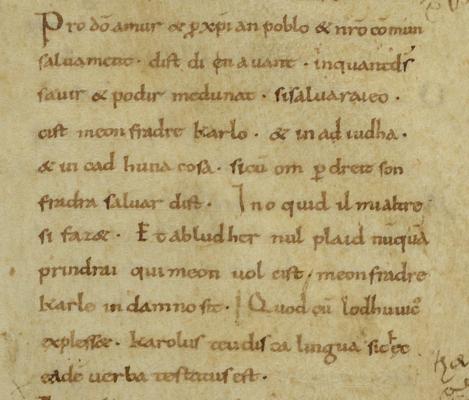 Pro dō amur & p xp̄ian poblo & nr̄o cōmun
saluament · dist di en auant · inquantdṡ
sauir & podir medunat · sisaluaraieo ·
cist meon fradre karlo · & in ad iudha ·
& in cad huna cosa · sicū om p dreit son
fradra saluar dist · Ino quid il mialtre
si faz& · Et abludher nul plaid nūquā
prindrai qui meon uol cist · meonfradre
karle in damno sit · Quod cū lodhuuic9
expless& · karolus teudisca lingua sic hec
eadē uerba testatusest ·